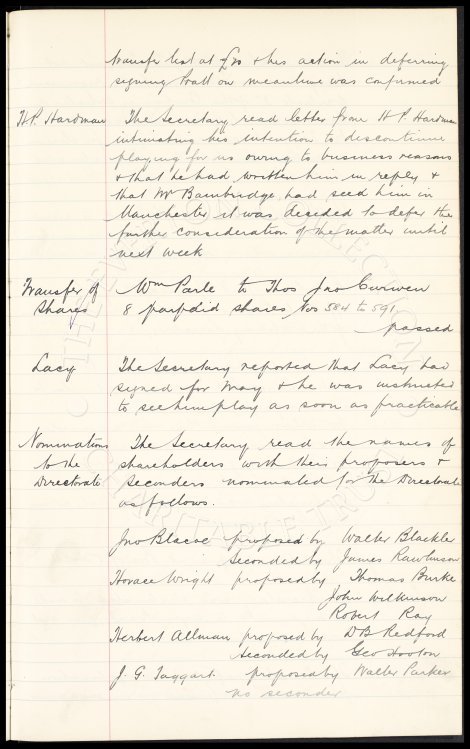 transfer list at £50 & his action in deferring
signing Pratt on meantime was confirmed
H.P. Hardman The Secretary read letter from H P. Hardman
intimating his intention to discontinue
playing for us owing to business reasons
& that he had written him in reply &
that Mr Bainbridge had seed him in
Manchester it was decided to defer the
further consideration of the matter until
next week
Transfer of Wm Parle to Thos Jno Curwen
Shares 8 partpdid shares Nos 584 to 591
passed
Lacy The Secretary reported that Lacy had
signed for May & he was instructed
to see him play as soon as practicable
Nominations The Secretary read the names of
to the shareholders with their proposers &
Directorate seconders nominated for the Directorate
as follows.
Jno Blacoe proposed by Walter Blackler
seconded by James Rawlinson
Horace Wright proposed by Thomas Burke
John Wilkinson
Robert Ray
Herbert Allman proposed by D B Redford
seconded by Geo Hooton
J. G. Taggart proposed by Walter Parker
no seconder